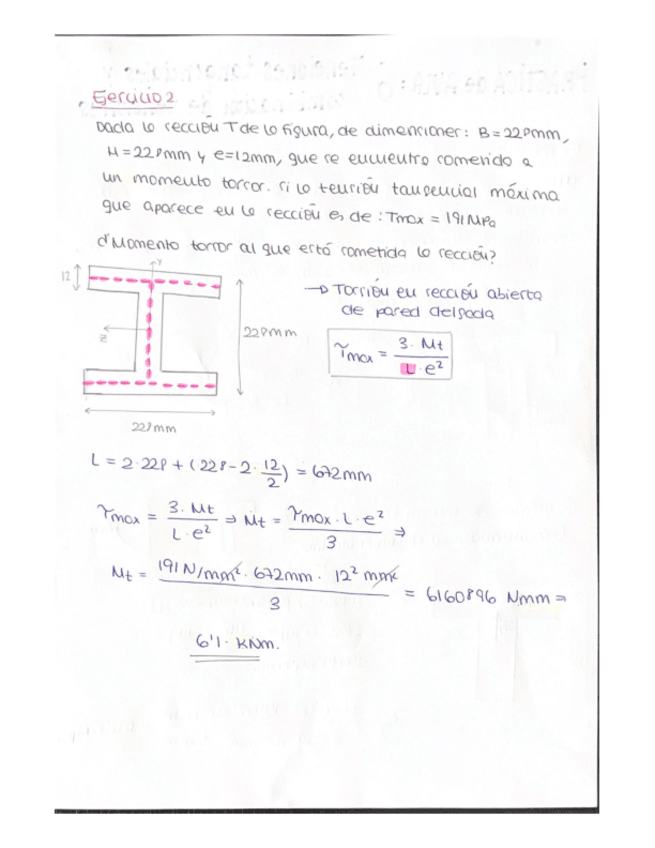 Ejercicio 2.
Dada la sección T de la figura, de dimensiones: B=228mm,
H=228mm y e=12mm, que se encuentra sometido a
un momento torsor. Si la tensión tangencial máxima
que aparece en la sección es de: Tmax = 191MPa
¿Momento torsor al que está sometida la sección?
→ Torsión en sección abierta
de pared delgada
12
Y
Z
228mm
228mm
τmax = 3·Mt / L·e²
L = 2·228 + (228 - 2·12/2) = 672mm
τmax = 3·Mt / L·e² ⇒ Mt = τmax·L·e² / 3 ⇒
Mt = 191N/mm²·672mm·12² mm² / 3 = 6160896 Nmm =
6'1· kNm.